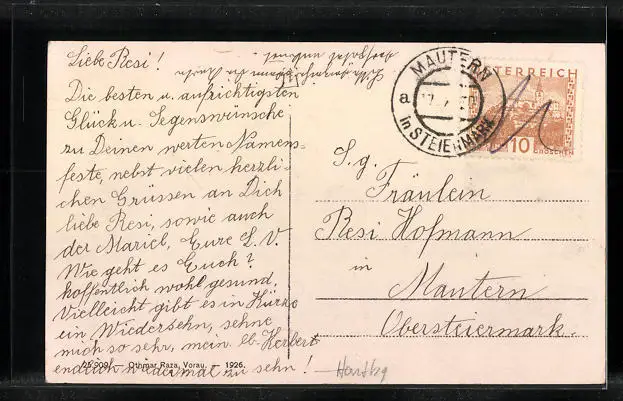 Liebe Resi!
Die besten u. aufrichtigsten
Glück u. Segenswünsche
zu Deinen werten Namens-
feste, nebst vielen herzli-
chen Grüssen an Dich
liebe Resi, sowie auch
der Mariel, Eure L. V.
Wie geht es Euch?
hoffentlich wohl gesund.
Vielleicht gibt es in Kürze
ein Wiedersehn, sehne
mich so sehr, mein lb. Herbert
endlich wieder mal zu sehn!
Othmar Raza, Vorau. — 1926.
MAUTERN
in STEIERMARK
a
ÖSTERREICH
10
GROSCHEN
S. g.
Fräulein
Resi Hofmann
in
Mautern
Obersteiermark.